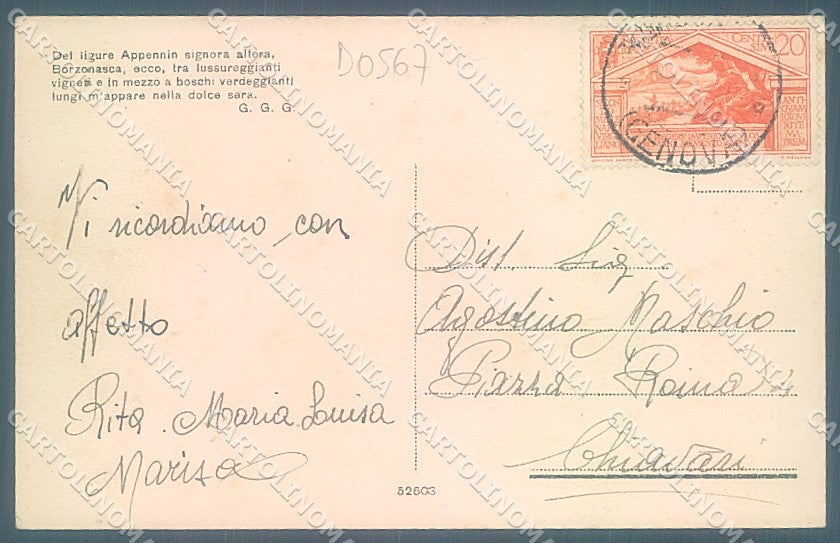 Del ligure Appennin signora altera,
Borzonasca, ecco, tra lussureggianti
vigneti e in mezzo a boschi verdeggianti
lungi m'appare nella dolce sera.
G. G. G.
D0567
CENTE
SIMI 20
(GENOVA)
Vi ricordiamo con
affetto
Rita. Maria Luisa
Marisa
Dist. Sig.
Agostino Maschio
Piazza Roma 4
Chiavari
52603
CARTOLINOMANIA